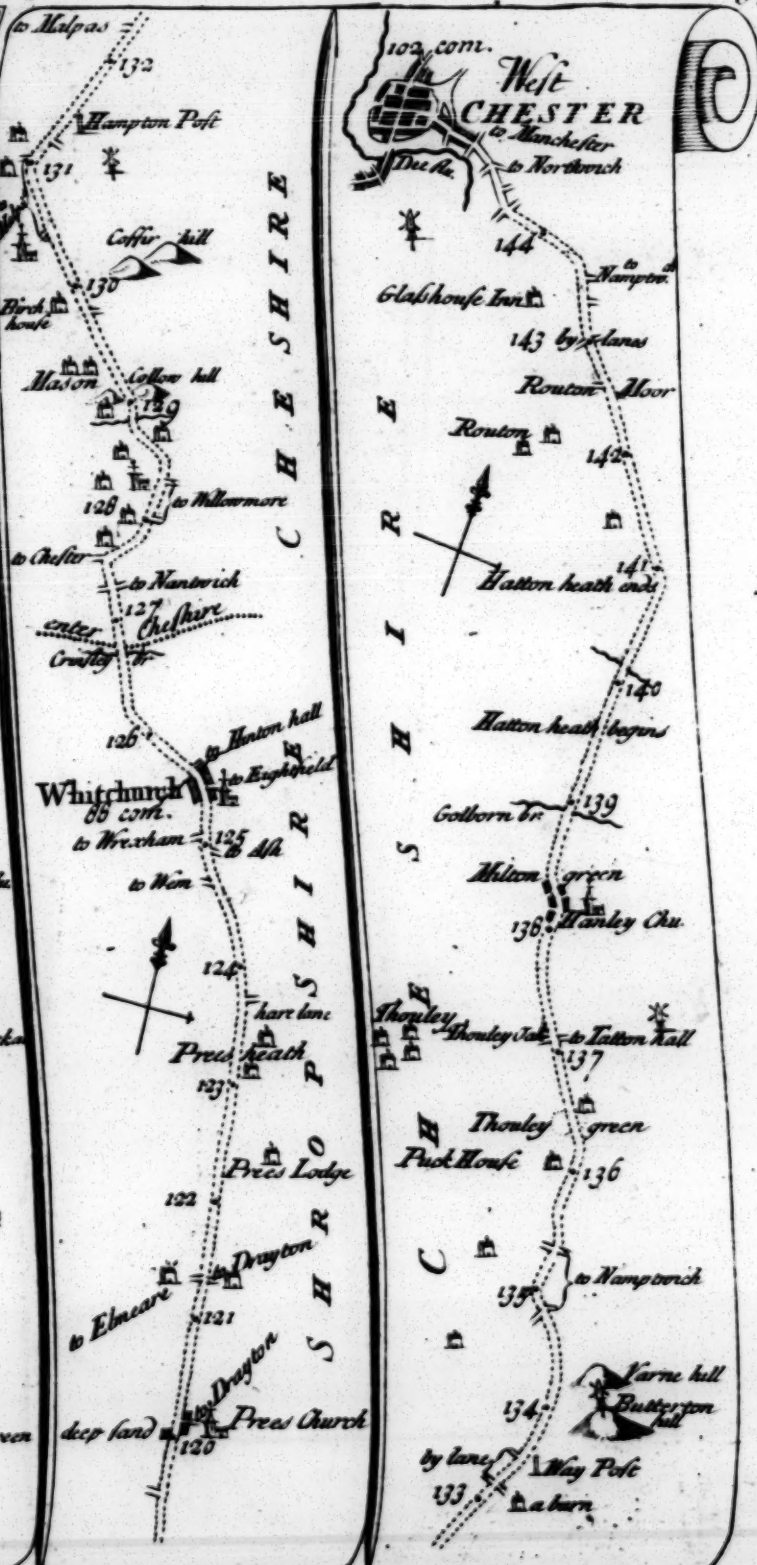 to Malpas
132
Hampton Post
131
Coffir hill
130
Birch
house
Mason
Collow hill
129
128
to Willowmore
to Chester
to Nantwich
127
enter Cheshire
126
to Hinton hall
to Eightfield
Whitchurch
88 com.
to Wrexham
125
to Ash
to Wem
124
hare lane
Prees heath
123
Prees Lodge
122
to Drayton
to Elmeare
121
to Drayton
deep sand
Prees Church
120
CHESHIRE
SHROPSHIRE
102 com.
West
CHESTER
to Manchester
to Northwich
Dee flu.
144
to
Namptw.
Glasshouse Inn
143 by lanes
Routon Moor
Routon
142
141
Hatton heath ends
140
Hatton heath begins
139
Golborn br.
Milton green
138
Hanley Chu
Thouley
Thouley Oak
to Tatton hall
137
Thouley green
Puck House
136
to Namptwich
135
Yarne hill
134
Butterton
hill
by lane
Way Post
133
a barn
CHESHIRE